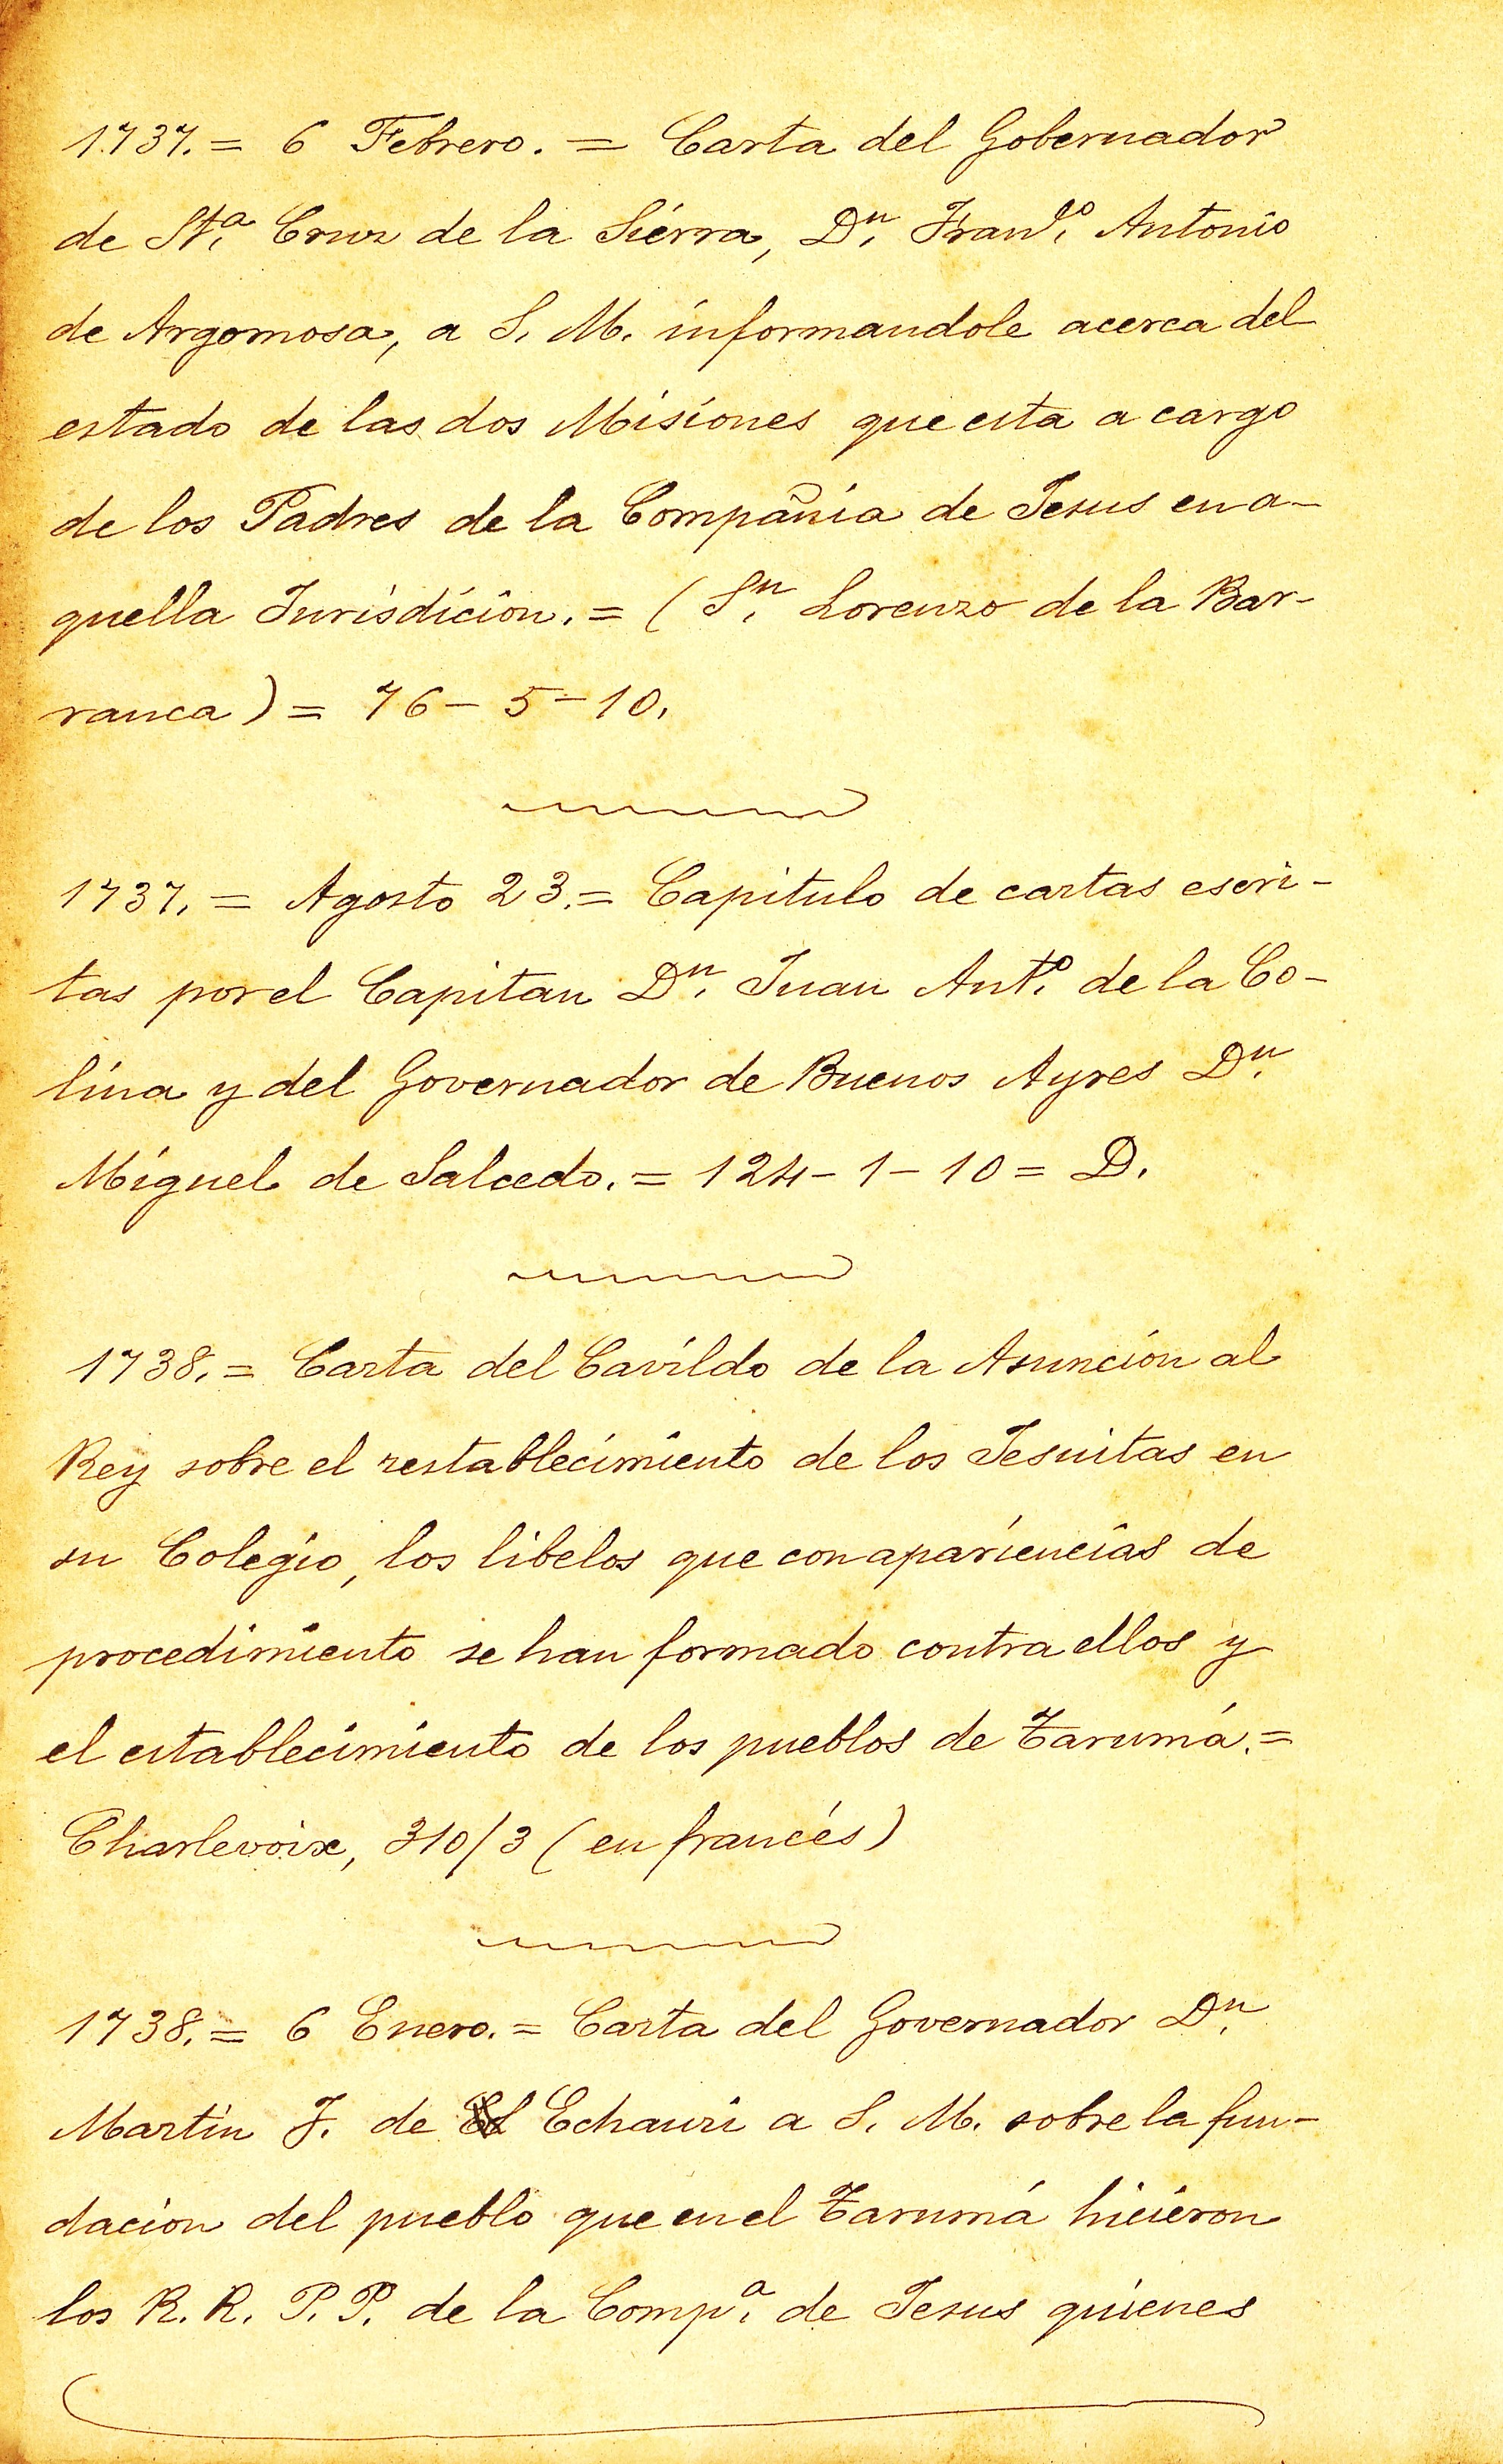 1737. = 6 Febrero. = Carta del Gobernador
de Sta. Cruz de la Sierra, Dn. Franco. Antonio
de Argomosa, a S. M. informandole acerca del
estado de las dos Misiones que esta a cargo
de los Padres de la Compañia de Jesus en a-
quella Jurisdicion. = (Sn. Lorenzo de la Bar-
ranca) = 76 - 5 - 10.
1737. = Agosto 23. = Capitulo de cartas escri-
tas por el Capitan Dn. Juan Anto. de la Co-
lina y del Governador de Buenos Ayres Dn.
Miguel de Salcedo. = 124 - 1 - 10 = D.
1738. = Carta del Cavildo de la Asunción al
Rey sobre el restablecimiento de los Jesuitas en
su Colegio, los libelos que con apariencias de
procedimiento se han formado contra ellos y
el establecimiento de los pueblos de Tarumá. =
Charlevoix, 310/3 (en francés)
1738. = 6 Enero. = Carta del Governador Dn.
Martin J. de Echauri a S. M. sobre la fun-
dacion del pueblo que en el Tarumá hicieron
los R. R. P. P. de la Compa. de Jesus quienes